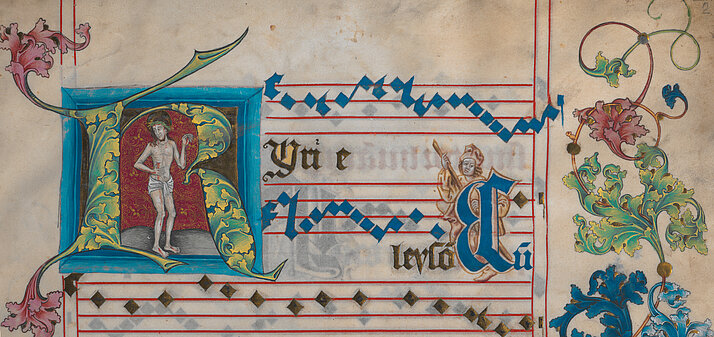 KYri e
leyſo Cū